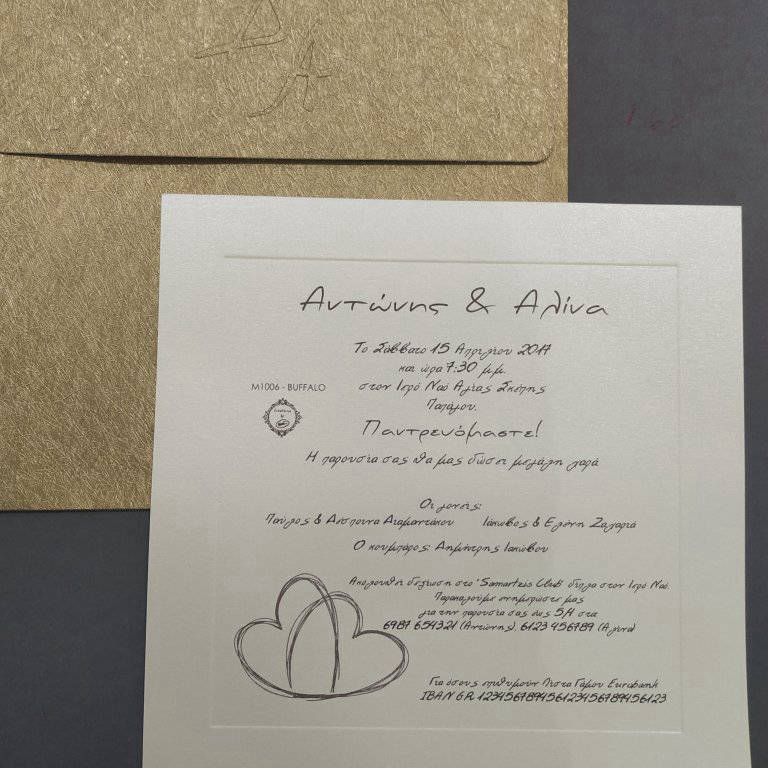 Αντώνης & Αλίνα
Το Σάββατο 15 Απριλίου 2017
και ώρα 7:30 μ.μ.
στον Ιερό Ναό Αγίας Σκέπης
Παπάγου.
M1006 - BUFFALO
Παντρευόμαστε!
Η παρουσία σας θα μας δώσει μεγάλη χαρά
Οι γονείς:
Παύλος & Δέσποινα Διαμαντάκου Ιάκωβος & Ελένη Ζαχαριά
Ο κουμπάρος: Δημήτρης Ιακώβου
Ακολουθεί δεξίωση στο "Club" δίπλα στον Ιερό Ναό.
Παρακαλούμε ενημερώστε μας
για την παρουσία σας έως 5/4 στα
6987 654321 (Αντώνης), 6123 456789 (Αλίνα)
Για όσους επιθυμούν Λίστα Γάμου Eurobank
IBAN GR 123456789456123456789456123